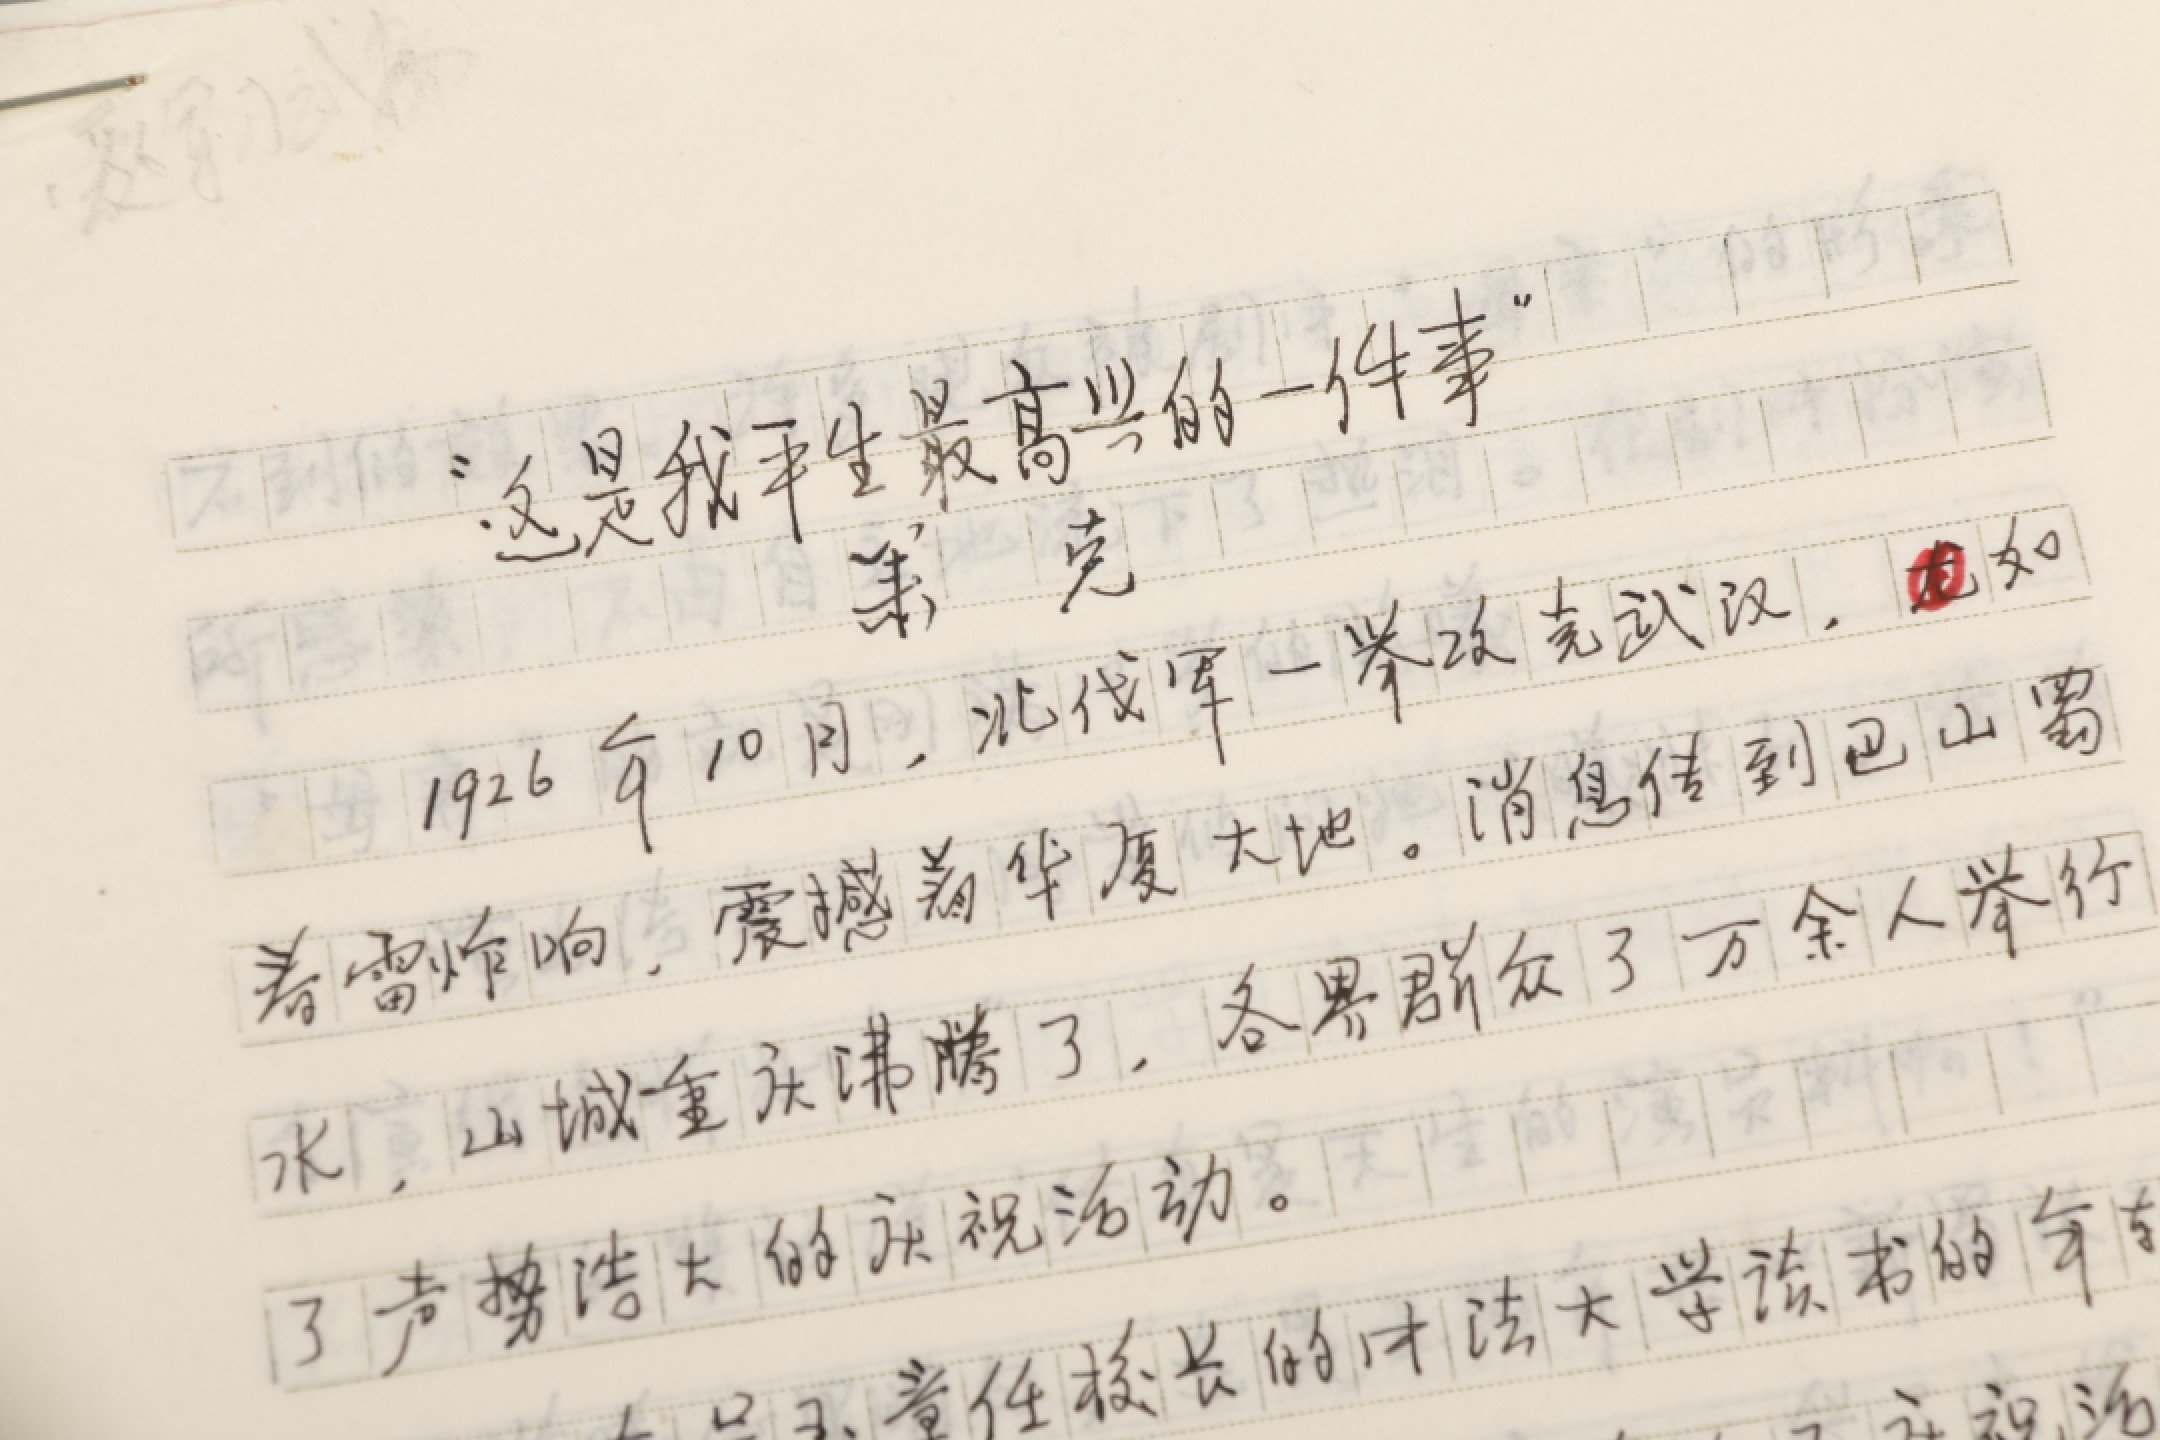 "这是我平生最高兴的一件事"
萧 克
1926年10月，北伐军一举攻克武汉，如
春雷炸响，震撼着华夏大地。消息传到巴山蜀
水，山城重庆沸腾了，各界群众3万余人举行
了声势浩大的庆祝活动。
吴玉章任校长的中法大学读书的年
庆祝活